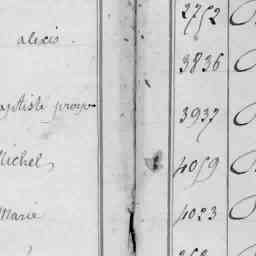 2752
alexis.
3836
aptiste proyo
3937
Michel,
4059
Marie
4023